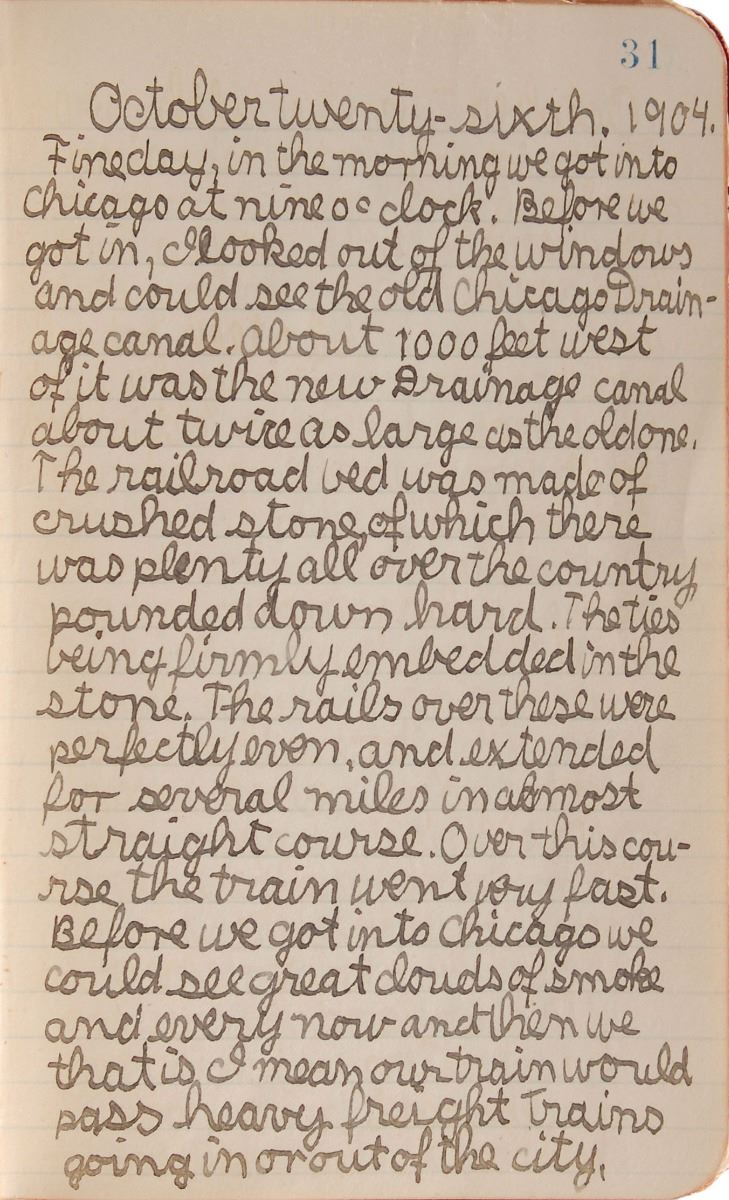 31
October twenty-sixth. 1904.
Fine day, in the morning we got into
Chicago at nine oc clock. Before we
got in, I looked out of the windows
and could see the old Chicago Drain-
age canal. About 1000 feet west
of it was the new Drainage canal
about twice as large as the old one.
The railroad bed was made of
crushed stone, of which there
was plenty all over the country
pounded down hard. The ties
being firmly embedded in the
stone. The rails over these were
perfectly even, and extended
for several miles in almost
straight course. Over this cou-
rse the train went very fast.
Before we got into Chicago we
could see great clouds of smoke
and every now and then we
that is I mean our train would
pass heavy freight trains
going in or out of the city.